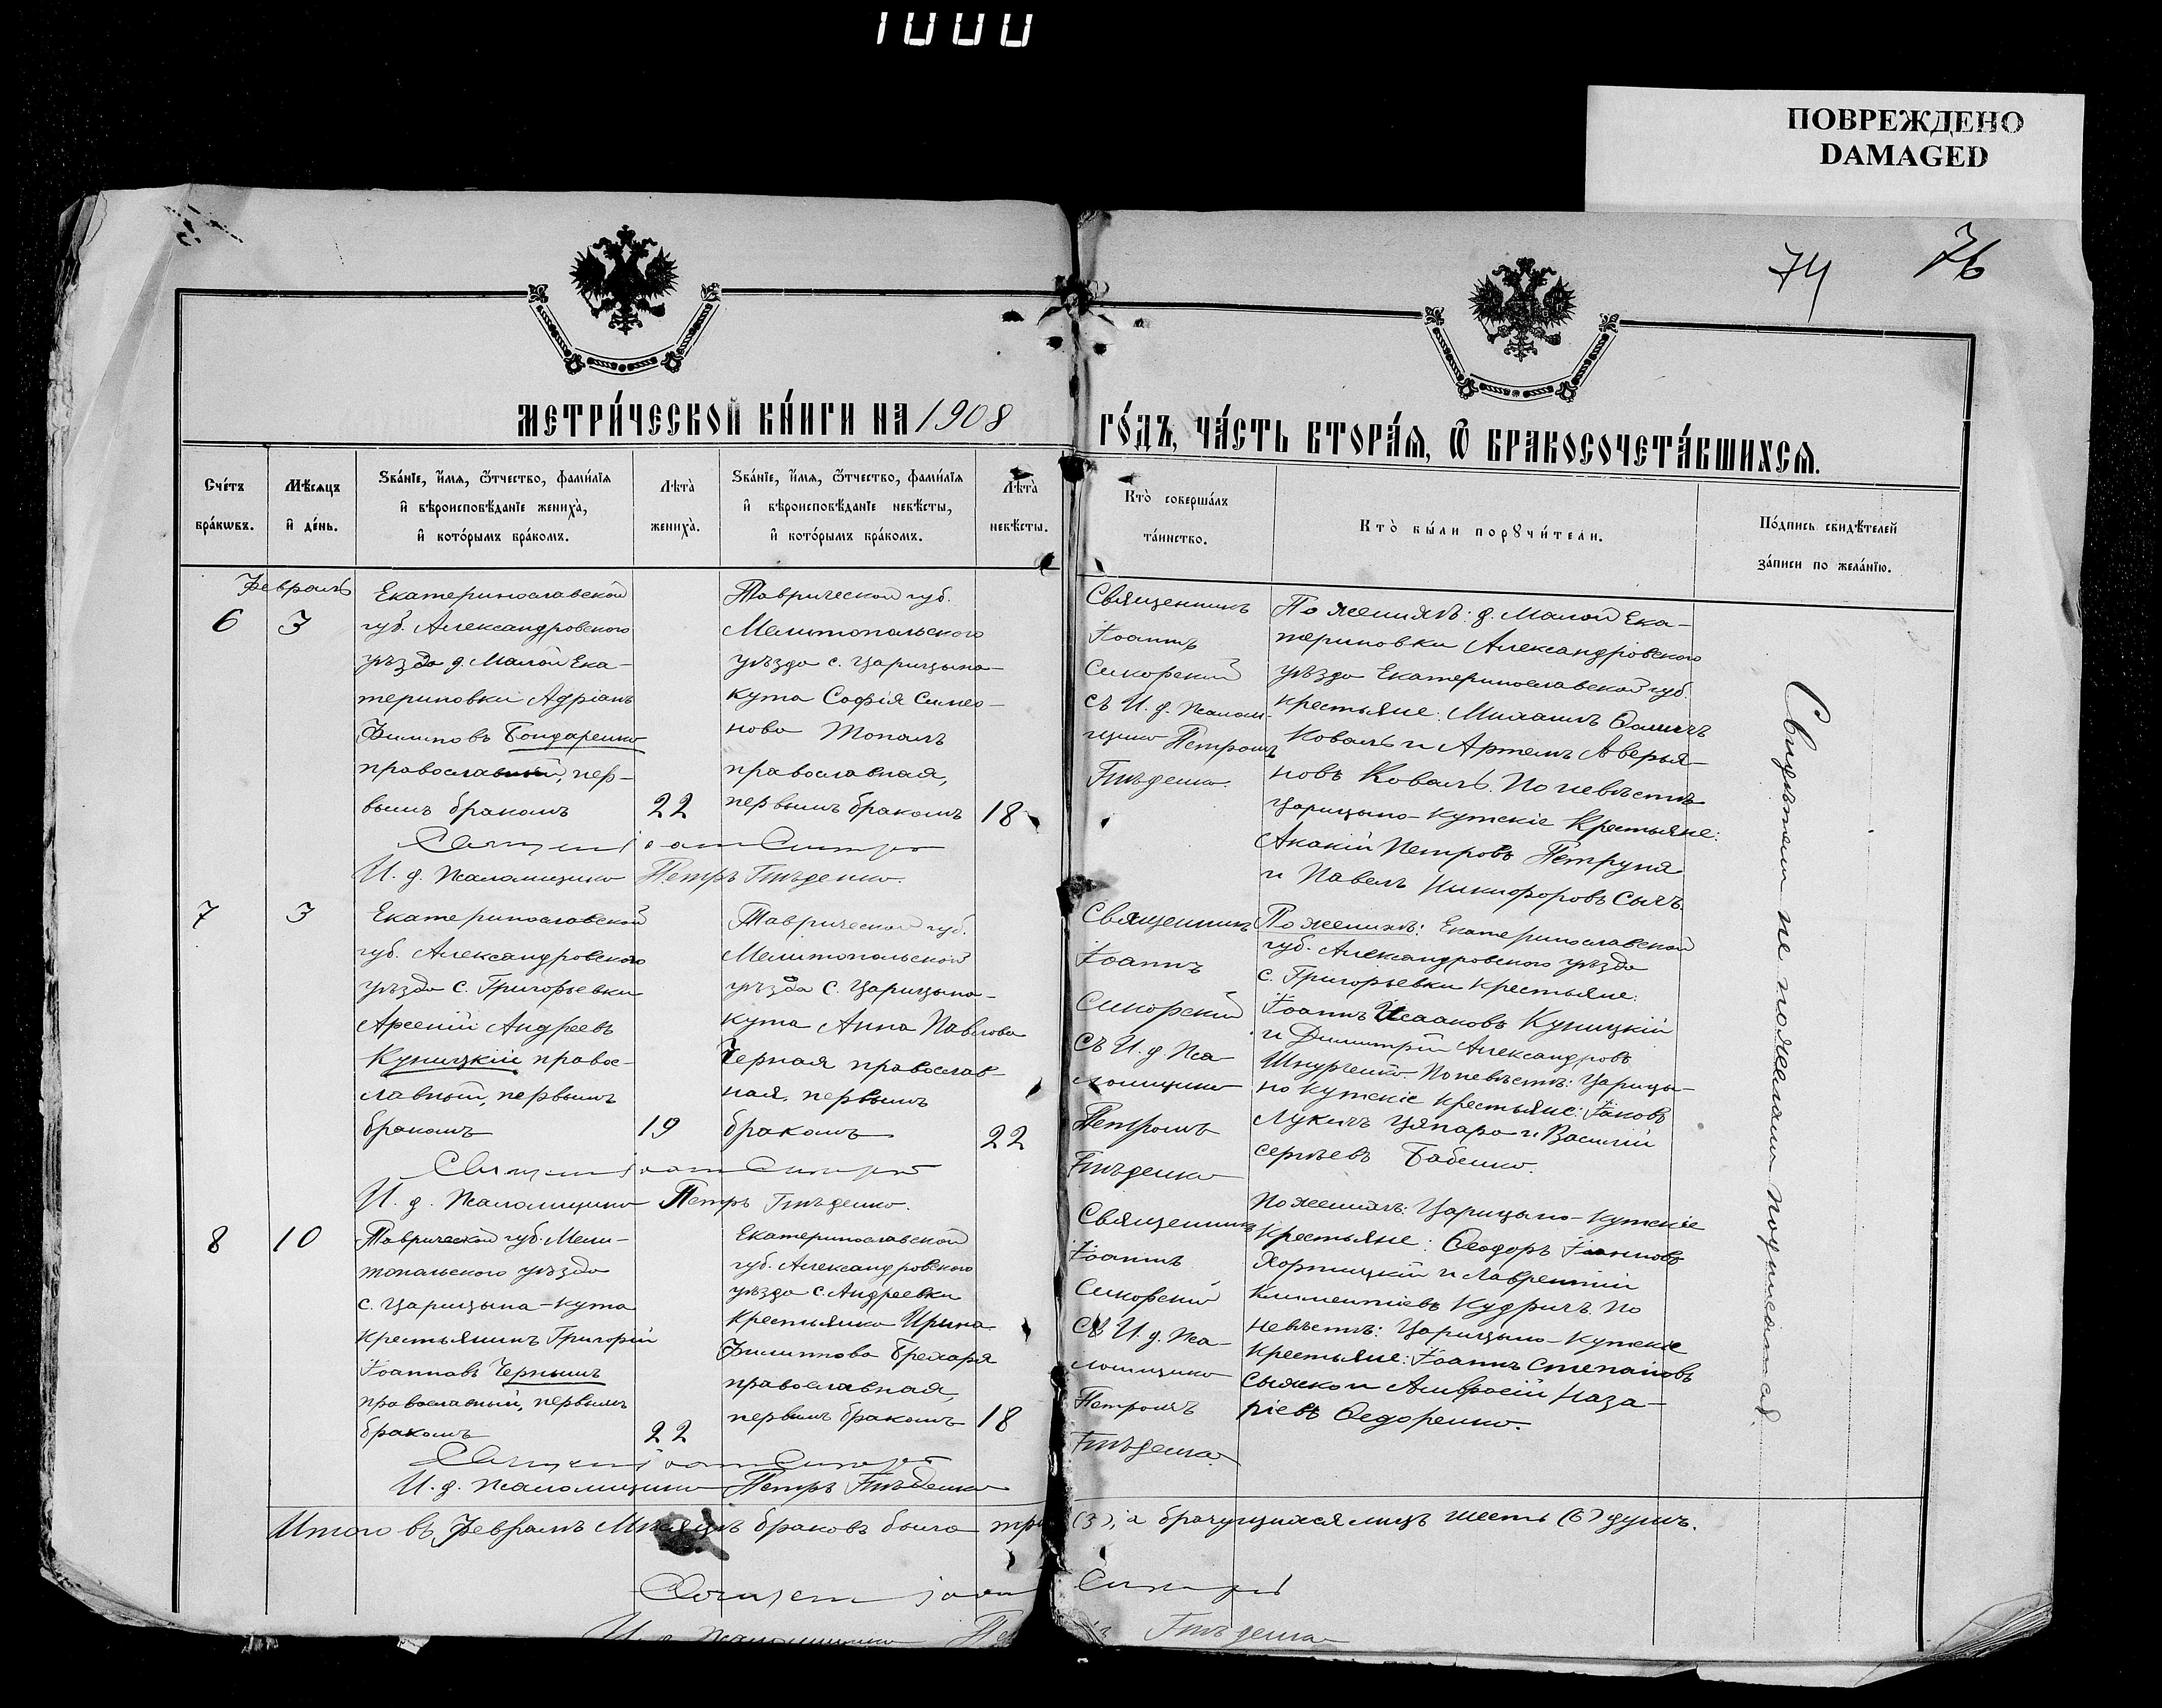 1000
ПОВРЕЖДЕНО
DAMAGED
74
76
МЕТРИ́ЧЕСКОЙ КНИ́ГИ НА 1908
ГО́ДЪ, ЧА́СТЬ ВТОРА́Я, Ѿ БРАКОСОЧЕТА́ВШИХСЯ.
Сче́тъ
бра́кѡвъ.
Мѣ́сяцъ
и҆ де́нь.
Ѕва́нїе, и҆́мя, ѻ҆́тчество, фами́лїя
и҆ вѣроисповѣ́данїе жениха̀,
и҆ кото́рымъ бра́комъ.
Лѣта̀
жениха̀.
Ѕва́нїе, и҆́мя, ѻ҆́тчество, фами́лїя
и҆ вѣроисповѣ́данїе невѣ́сты,
и҆ кото́рымъ бра́комъ.
Лѣта̀
невѣ́сты.
Кто̀ соверша́лъ
та́инство.
Кто̀ бы́ли порꙋчи́тели.
По́дпись свидѣ́телей
за́писи по жела́нїю.
Февраль
6
3
Екатеринославской
губ. Александровского
уѣзда д. Малой Ека-
териновки Адріанъ
Филиповъ Бондаренко
православный, пер-
вымъ бракомъ
22
Таврической губ.
Мелитопольского
уѣзда с. Царицына-
кута Софія Симео-
нова Топалъ
православная,
первымъ бракомъ
18
Священникъ
Іоаннъ
Сикорский
съ И. д. Псалом-
щика Петромъ
Гнѣденко.
По женихѣ: д. Малой Ека-
териновки Александровского
уѣзда Екатеринославской губ.
крестьяне: Михаилъ Ѳомичъ
Коваль и Артемъ Аверья-
новъ Коваль. По невѣстѣ
Царицыно-Кутскіе Крестьяне:
Акакій Петровъ Петруня
и Павелъ Никифоровъ Сычъ.
Священ Іоаннъ Сикорский
И. д. Псаломщика Петръ Гнѣденко.
7
3
Екатеринославской
губ. Александровского
уѣзда с. Григорьевки
Арсеній Андреевъ
Куницкій правос-
лавный, первымъ
бракомъ
19
Таврической губ.
Мелитопольской
уѣзда с. Царицына-
кута Анна Павлова
Черная православ-
ная, первымъ
бракомъ
22
Священникъ
Іоаннъ
Сикорский
съ И. д. Пса-
ломщика
Петромъ
Гнѣденко
По женихѣ: Екатеринославской
губ. Александровского уѣзда
с. Григорьевки крестьяне:
Іоаннъ Исааковъ Куницкій
и Димитрій Александровъ
Шнурченко. По невѣстѣ: Царицы-
но кутскіе крестьяне: Іаковъ
Лукичъ Цапаро и Василій
Сергѣевъ Бабенко.
Священ Іоаннъ Сикорский
И. д. Псаломщика Петръ Гнѣденко.
8
10
Таврической губ. Мели-
топольского уѣзда
с. Царицына-кута
крестьянинъ Григорій
Іоанновъ Чернышъ
православный, первымъ
бракомъ
22
Екатеринославской
губ. Александровского
уѣзда с. Андреевки
крестьянка Ирина
Филиппова Брехаря
православная,
первымъ бракомъ
18
Священникъ
Іоаннъ
Сикорский
съ И. д. Пса-
ломщика
Петромъ
Гнѣденко.
По женихѣ: Царицыно-кутскіе
крестьяне: Ѳеодоръ Іоанновъ
Хортицкій и Лаврентій
Климентіевъ Кудричъ. По
невѣстѣ: Царицыно-кутскіе
крестьяне: Іоаннъ Степановъ
и Амвросій Наза-
ріевъ Ѳедоренко.
Священ Іоаннъ Сикорский
И. д. Псаломщика Петръ Гнѣденко
Свидѣтели не пожелали подписаться.
Итого въ Февралѣ Мѣсяцѣ браковъ было три (3), а брачущихся лицъ шесть (6) душъ.
Священ Іоаннъ Сикорский
И. д. Псаломщика Петръ Гнѣденко